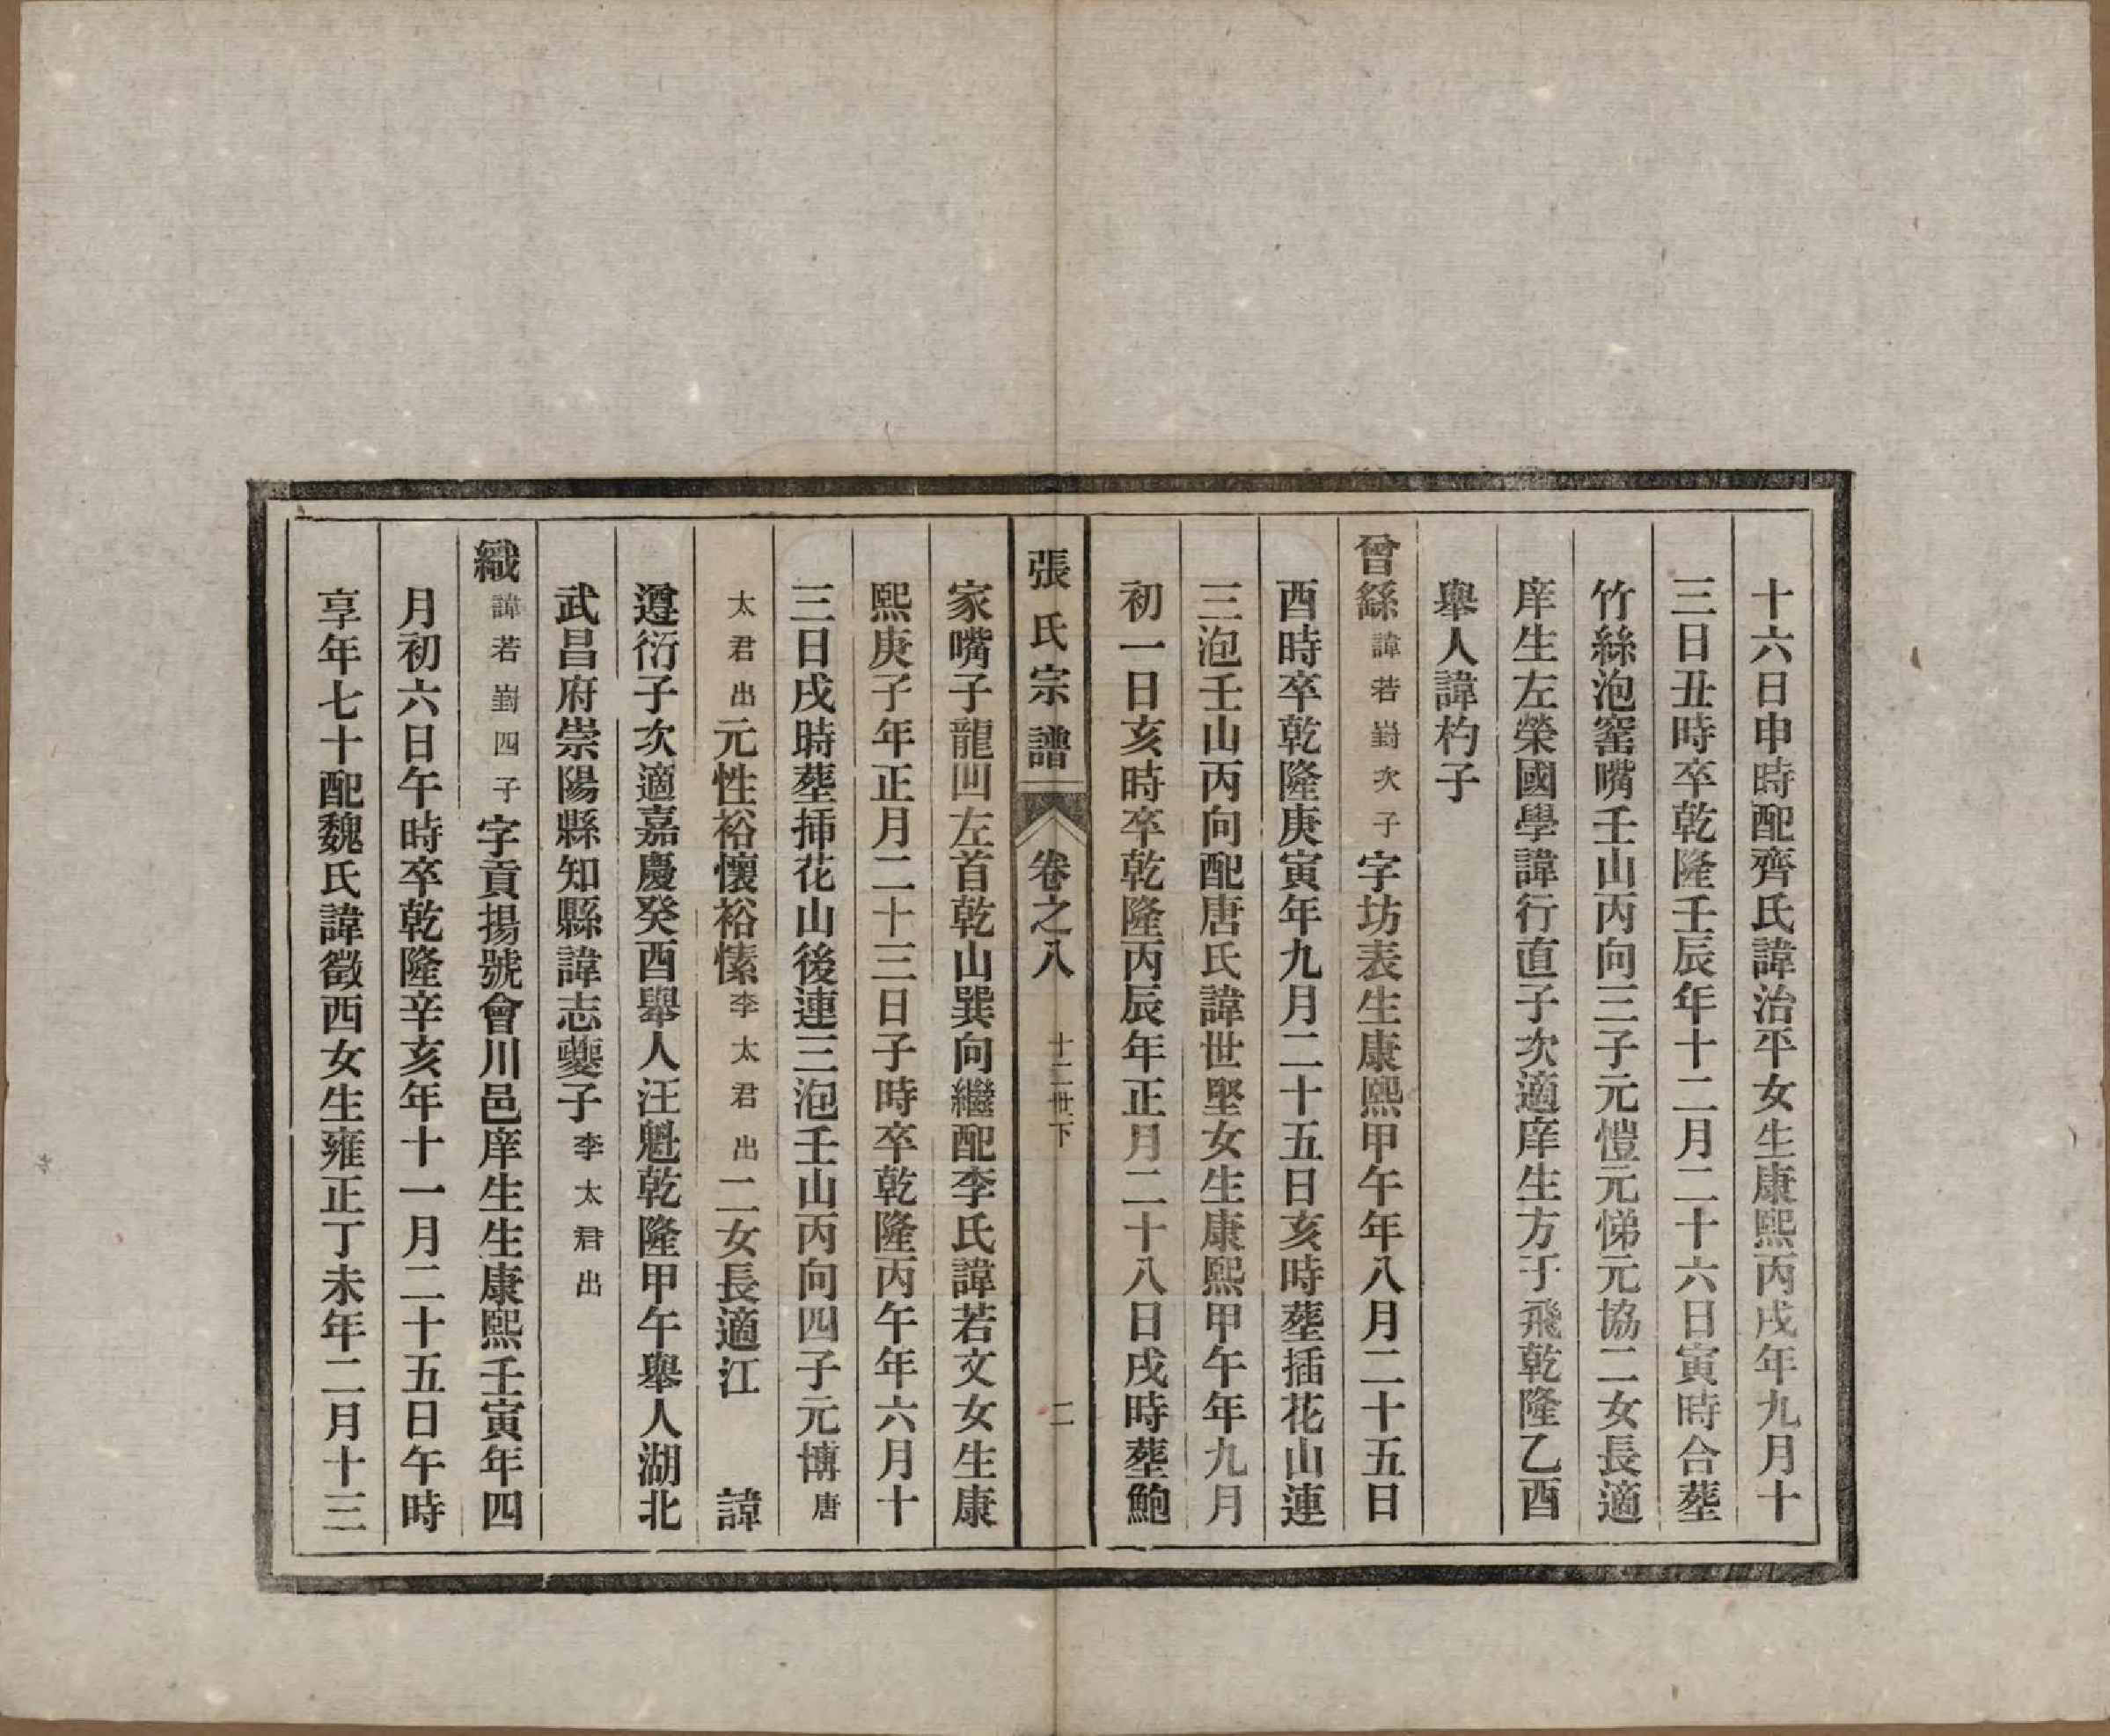 十六日申時配齊氏諱治平女生康熙丙戌年九月十
三日丑時卒乾隆壬辰年十二月二十六日寅時合葬
竹絲泡窰嘴壬山丙向三子元愷元悌元協二女長適
庠生左榮國學諱行直子次適庠生方于飛乾隆乙酉
舉人諱杓子
曾繇諱若嶎次子字坊表生康熙甲午年八月二十五日
酉時卒乾隆庚寅年九月二十五日亥時葬插花山連
三泡壬山丙向配唐氏諱世堅女生康熙甲午年九月
初一日亥時卒乾隆丙辰年正月二十八日戌時葬鮑
張氏宗譜 卷之八 十二世下 二
家嘴子龍凹左首乾山巽向繼配李氏諱若文女生康
熙庚子年正月二十三日子時卒乾隆丙午年六月十
三日戌時葬揷花山後連三泡壬山丙向四子元博唐
太君出元性裕懷裕愫李太君出二女長適江 諱
遵衍子次適嘉慶癸酉舉人汪魁乾隆甲午舉人湖北
武昌府崇陽縣知縣諱志夔子李太君出
織諱若嶎四子字貢揚號會川邑庠生生康熙壬寅年四
月初六日午時卒乾隆辛亥年十一月二十五日午時
享年七十配魏氏諱徵西女生雍正丁未年二月十三